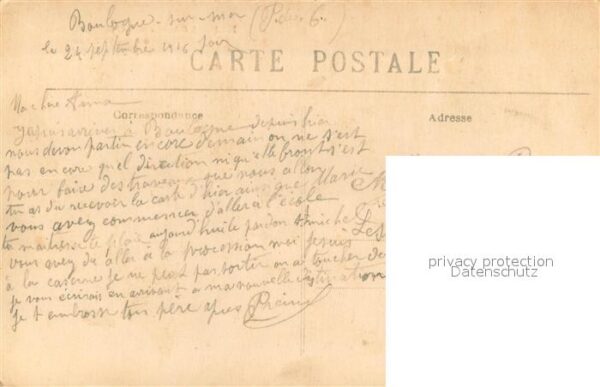 Boulogne-sur-mer (P. de C.)
le 24 septembre 1916 Soir
CARTE POSTALE
Ma chère Anna
Correspondance
Adresse
arrivée à Boulogne depuis hier
nous devon partir encore demain on ne s'est
pas encore quel direction ni quelle front s'est
pour faire des travaux que nous allon
tu as du recevoir la carte d'hier ainsi que Marie
vous avez commencer d'aller à l'école
ta maitresse te plait aujourd'hui le pardon St miche
vous avez du aller à la procession moi je suis
à la caserne je ne peut pas sortir on a
je vous écrirais en arrivant a ma nouvelle
je t'embrasse ton père
privacy protection
Datenschutz